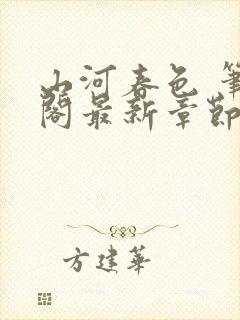 山河春色 筆
閣最新章節
方建華